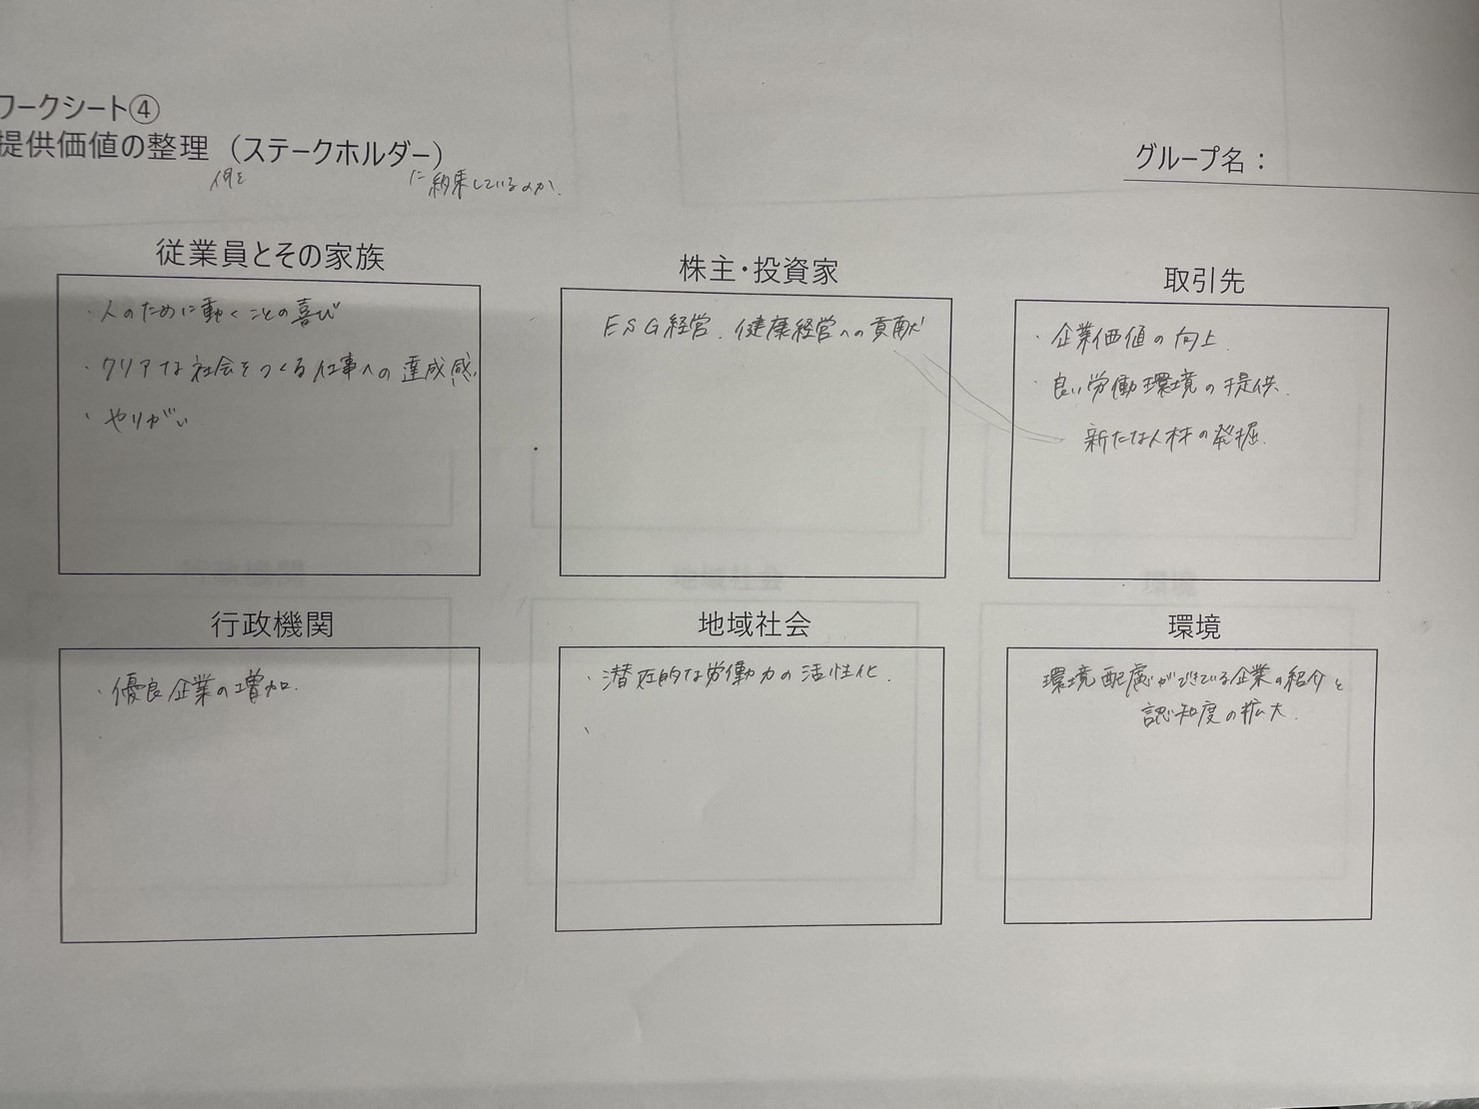 ワークシート④
提供価値の整理（ステークホルダー）
何を に約束しているのか.
グループ名：
従業員とその家族
・人のために動くことの喜び
・クリアな社会をつくる仕事への達成感.
・やりがい
株主・投資家
ESG経営.健康経営への貢献
取引先
・企業価値の向上.
・良い労働環境の提供.
新たな人材の発掘.
行政機関
・優良企業の増加.
地域社会
・潜在的な労働力の活性化.
、
環境
環境配慮ができている企業の紹介と
認知度の拡大.